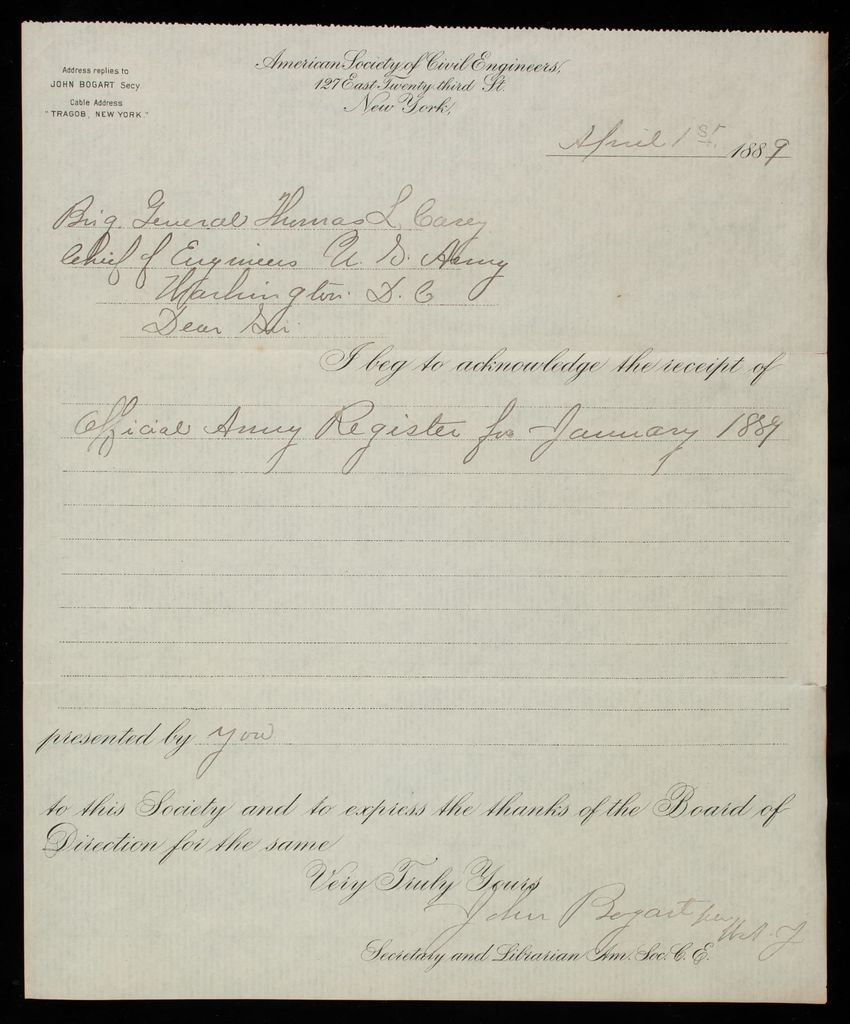 American Society of Civil Engineers,
127 East Twenty third St.
New York,
Address replies to
JOHN BOGART Secy.
Cable Address
"TRAGOB, NEW YORK."
April 1st. 1889
Brig. General Thomas L Casey
Chief of Engineers U. S. Army
Washington. D. C
Dear Sir.
I beg to acknowledge the receipt of
Official Army Register for January 1889
presented by you
to this Society and to express the thanks of the Board of
Direction for the same
Very Truly Yours
John Bogart per
Secretary and Librarian Am. Soc. C. E.